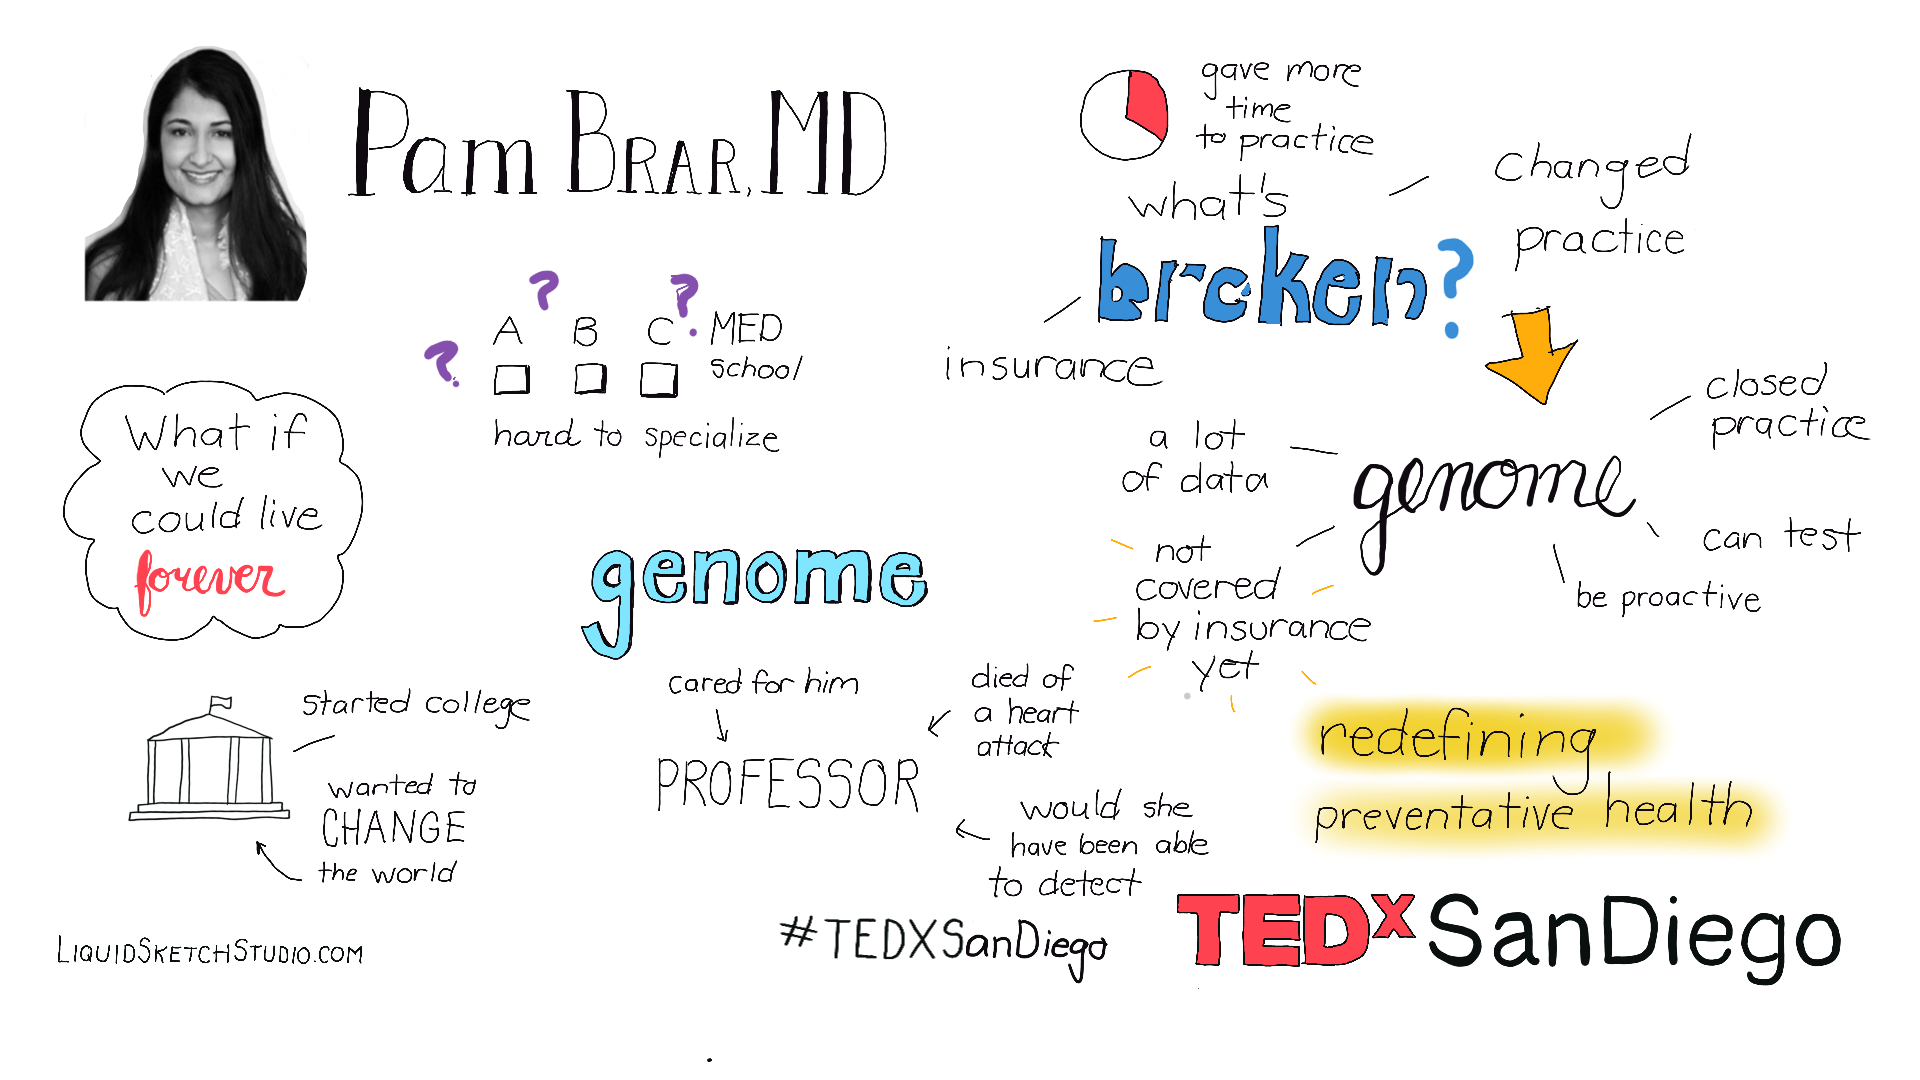 Pam BRAR, MD
A B C MED
school
hard to specialize
?
?
?
What if
we
could live
forever
started college
wanted to
CHANGE
the world
genome
cared for him
PROFESSOR
died of
a heart
attack
would she
have been able
to detect
gave more
time
to practice
what's
broken?
insurance
changed
practice
closed
practice
genome
a lot
of data
can test
be proactive
not
covered
by insurance
yet
redefining
preventative health
LIQUIDSKETCHSTUDIO.COM
#TEDXSanDiego
TEDx SanDiego